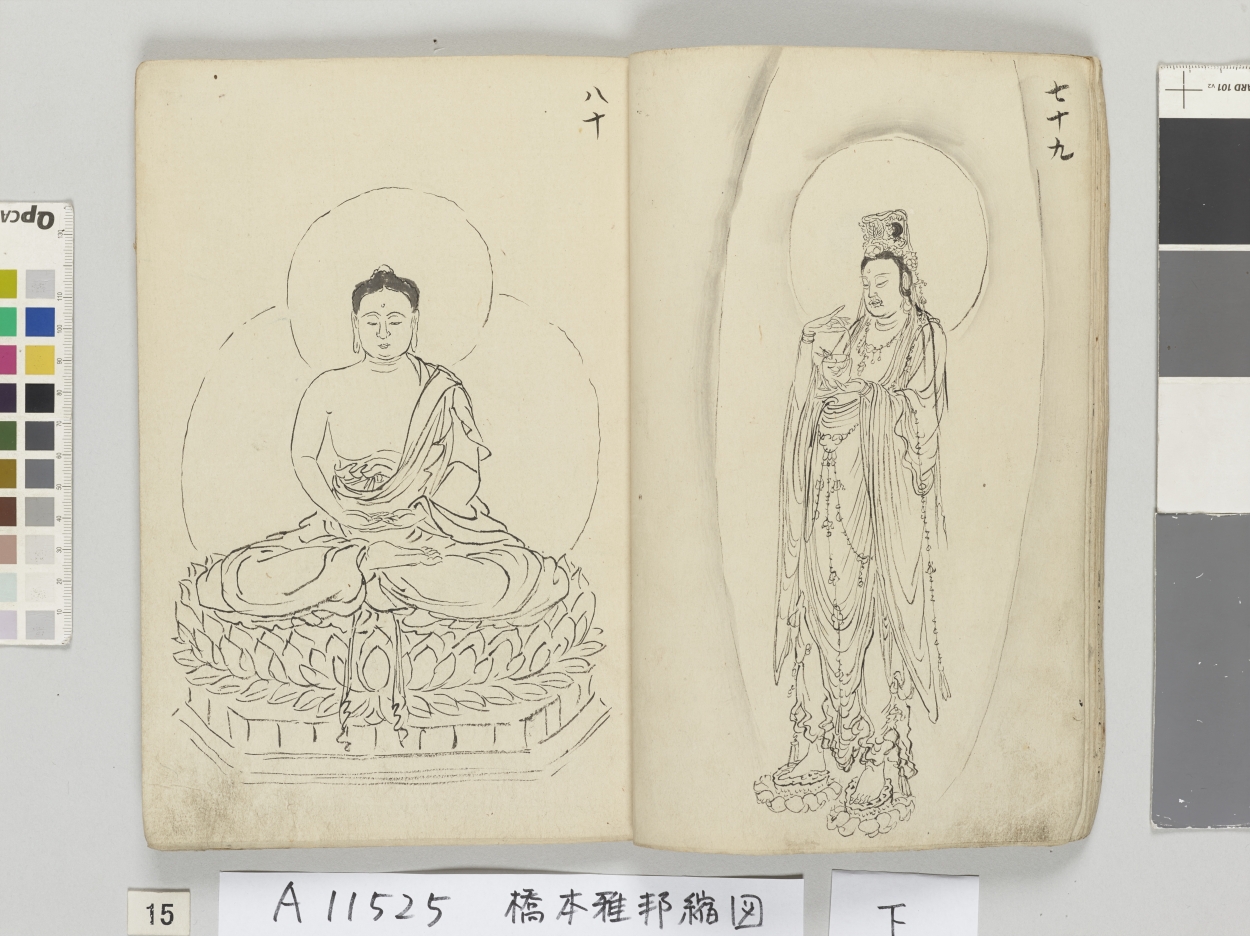 七十九
八十
15
A 11525 橋本雅邦縮図
下
QPCA
ARD 101 v2